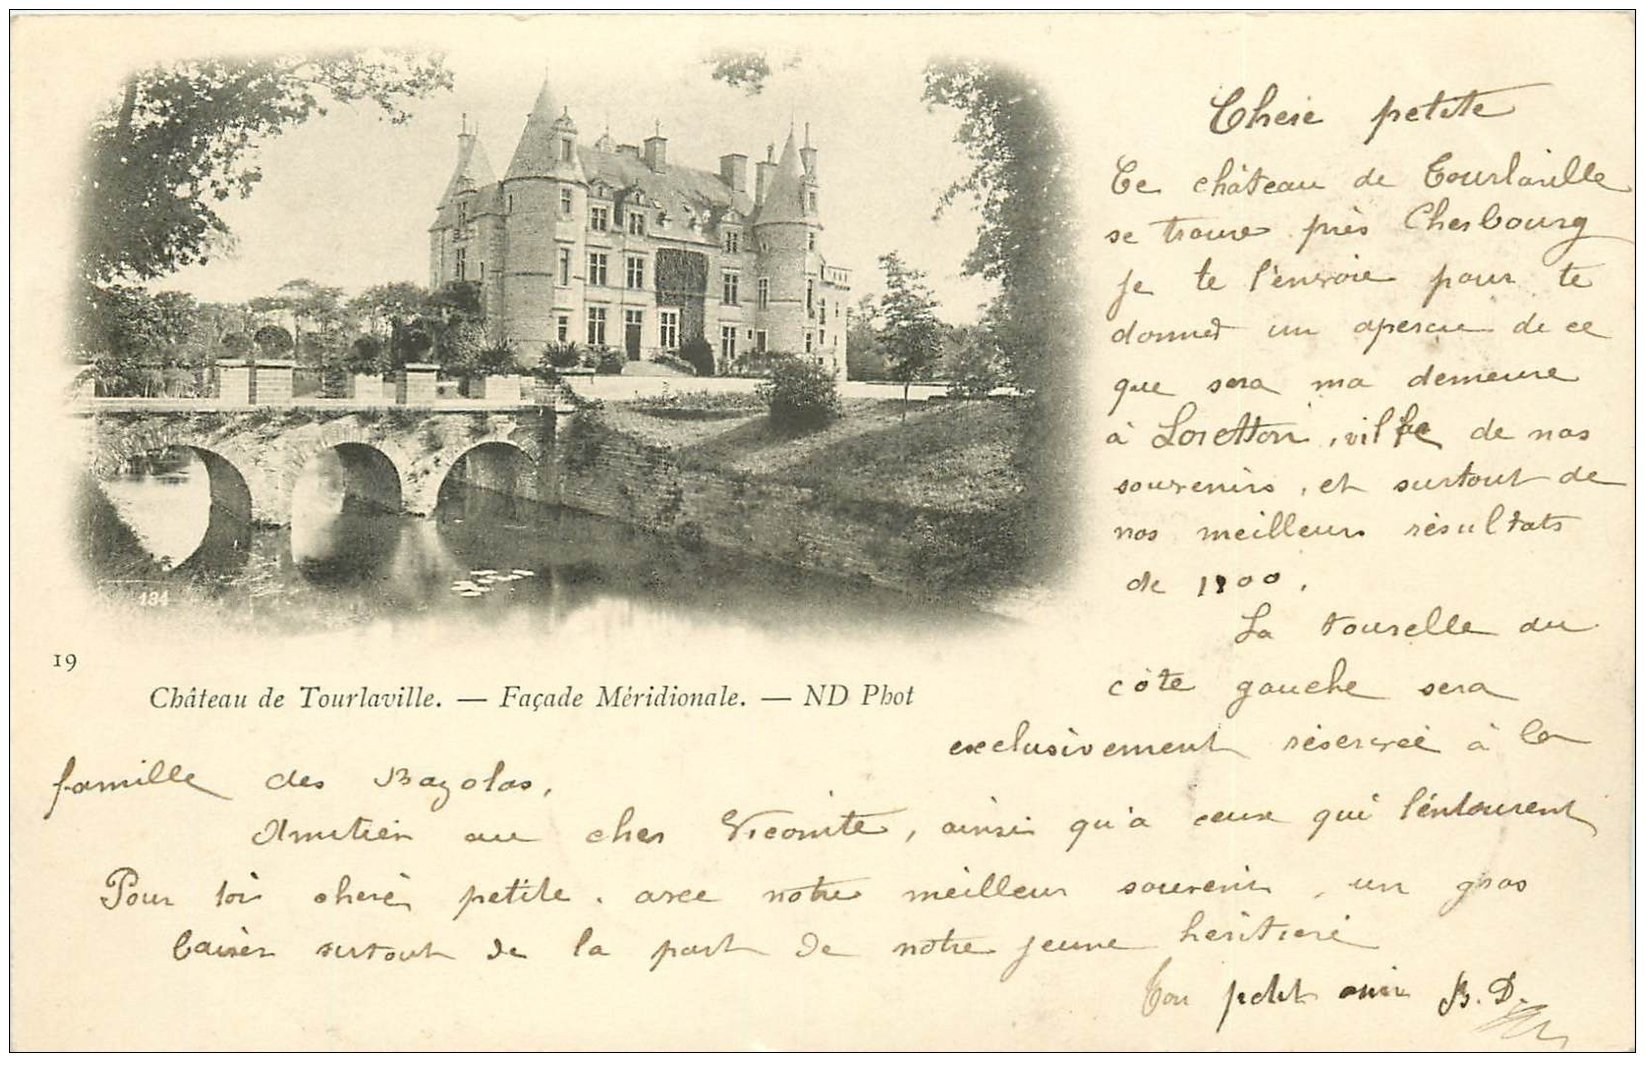 Chère petite
Ce château de Tourlaville
se trouve près Cherbourg
je te l'envoie pour te
donner un apercu de ce
que sera ma demeure
à Loretton, ville de nos
souvenirs, et surtout de
nos meilleurs résultats
de 1900.
La tourelle du
côté gauche sera
exclusivement réservée à la
famille des Bazolas,
134
19
Château de Tourlaville. — Façade Méridionale. — ND Phot
Amitiés au cher Vicomte, ainsi qu'à ceux qui l'éntourent
Pour toi chère petite. avec notre meilleur souvenir, un gros
baiser surtout de la part de notre jeune héritière
Ton petit ami B. D.